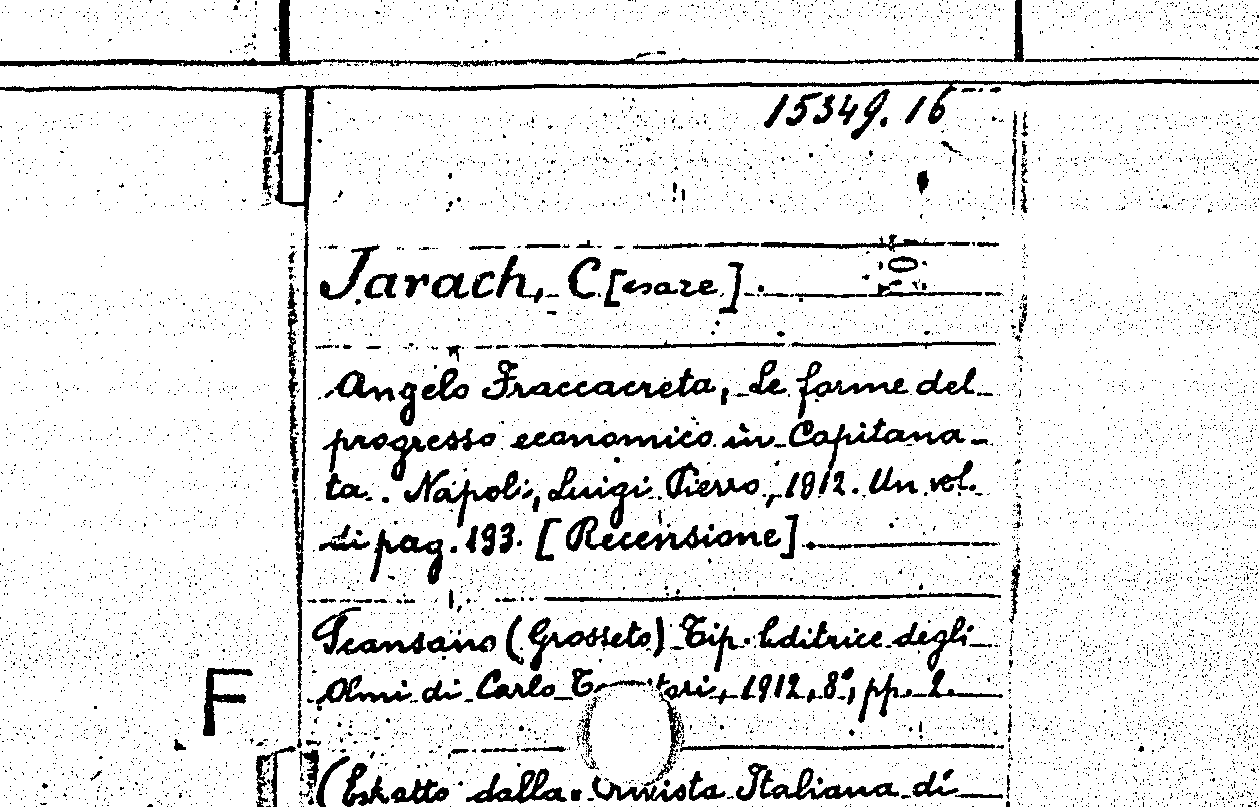 15349.16
Jarach, C[esare].
Angelo Fraccacreta, Le forme del
progresso economico in Capitana-
ta. Napoli, Luigi Pierro, 1912. Un vol.
di pag. 193. [Recensione].
Scansano (Grosseto) Tip. Editrice degli
Olmi di Carlo 1912, 8°, pp. 2.
F
(Estratto dalla Rivista Italiana di